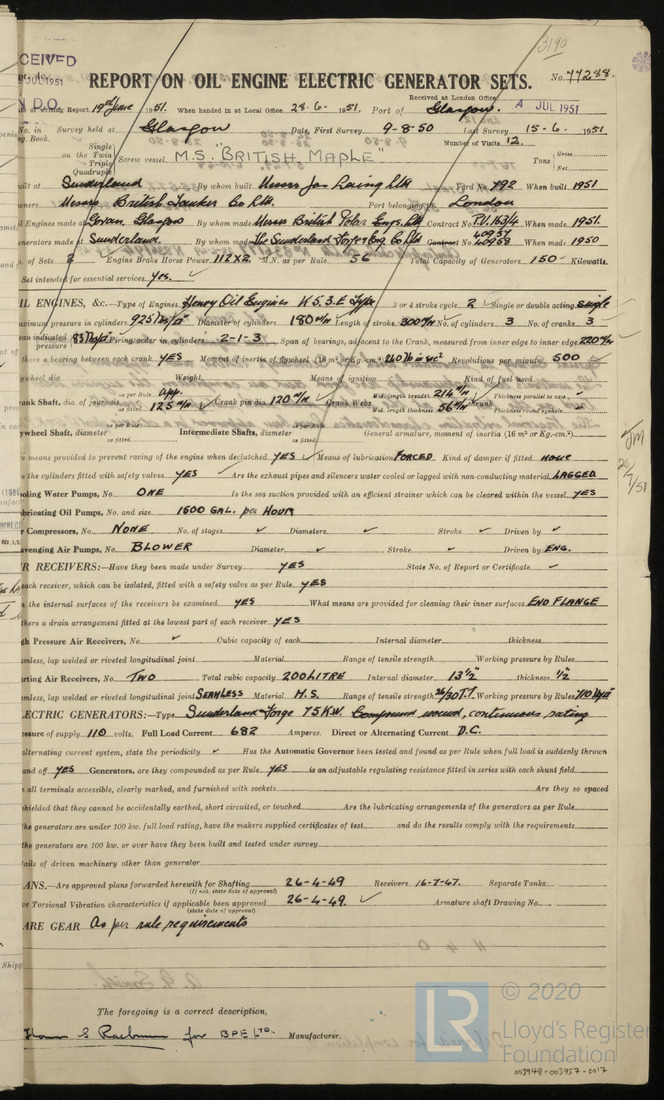 3190
CEIVED
JUL 1951
D.O.
REPORT ON OIL ENGINE ELECTRIC GENERATOR SETS. No. 77288.
Received at London Office
of writing Report 19th June 1951. When handed in at Local Office 28.6. 1951. Port of Glasgow. 4 JUL 1951
No. in Survey held at Glasgow Date, First Survey 9-8-50 Last Survey 15-6. 1951
g. Book. Number of Visits 12.
on the Single Twin Triple Quadruple Screw vessel M.S. "BRITISH MAPLE" Tons Gross Net
ilt at Sunderland By whom built Messrs Jas Laing Ltd Yard No. 792 When built 1951
ners Messrs British Tanker Co Ltd. Port belonging to London
l Engines made at Govan, Glasgow By whom made Messrs British Polar Engs. Ltd Contract No. When made 1951.
enerators made at Sunderland. By whom made The Sunderland Forge & Eng. Co Ltd Contract No. 40957 40958 When made 1950
. of Sets 2 Engine Brake Horse Power 112 X 2. M.N. as per Rule 56 Total Capacity of Generators 150 Kilowatts.
Set intended for essential services Yes.
IL ENGINES, &c.—Type of Engines Henry Oil Engines K 5.3.E Type 2 or 4 stroke cycle 2 Single or double acting Single
aximum pressure in cylinders 925 Diameter of cylinders 180 m/m Length of stroke 300 m/m No. of cylinders 3 No. of cranks 3
ean indicated pressure 83 Firing order in cylinders 2-1-3 Span of bearings, adjacent to the Crank, measured from inner edge to inner edge 220 m/m
there a bearing between each crank YES Moment of inertia of flywheel (16 m² or Kg.-cm.²) Revolutions per minute 500
ywheel dia. Weight Means of ignition Kind of fuel used
rank Shaft, dia. of journals as per Rule App. as fitted 125 m/m Crank pin dia. 120 m/m Crank Webs Mid. length breadth 214 m/m Thickness parallel to axis
Mid. length thickness 56 m/m shrunk Thickness round eyehole
ywheel Shaft, diameter as per Rule as fitted Intermediate Shafts, diameter as per Rule as fitted General armature, moment of inertia (16 m² or Kg.-cm.²)
e means provided to prevent racing of the engine when declutched YES Means of lubrication FORCED Kind of damper if fitted none
e the cylinders fitted with safety valves YES Are the exhaust pipes and silencers water cooled or lagged with non-conducting material LAGGED
ooling Water Pumps, No. ONE Is the sea suction provided with an efficient strainer which can be cleared within the vessel YES
ubricating Oil Pumps, No. and size 1500 GAL. per HOUR
r Compressors, No. NONE No. of stages Diameters Stroke Driven by
avenging Air Pumps, No. BLOWER Diameter Stroke Driven by ENG.
R RECEIVERS:—Have they been made under Survey YES State No. of Report or Certificate
each receiver, which can be isolated, fitted with a safety valve as per Rule YES
n the internal surfaces of the receivers be examined YES What means are provided for cleaning their inner surfaces END FLANGE
there a drain arrangement fitted at the lowest part of each receiver YES
gh Pressure Air Receivers, No. Cubic capacity of each Internal diameter thickness
mless, lap welded or riveted longitudinal joint Material Range of tensile strength Working pressure by Rules
arting Air Receivers, No. TWO Total cubic capacity 200 LITRE Internal diameter 13½" thickness ½"
mless, lap welded or riveted longitudinal joint SEAMLESS Material M.S. Range of tensile strength 26/30 T. Working pressure by Rules
LECTRIC GENERATORS:—Type Sunderland Forge 75 KW. Compound wound, continuous rating
essure of supply 110 volts. Full Load Current 682 Amperes. Direct or Alternating Current D.C.
alternating current system, state the periodicity Has the Automatic Governor been tested and found as per Rule when full load is suddenly thrown
and off YES Generators, are they compounded as per Rule YES is an adjustable regulating resistance fitted in series with each shunt field
e all terminals accessible, clearly marked, and furnished with sockets Are they so spaced
shielded that they cannot be accidentally earthed, short circuited, or touched Are the lubricating arrangements of the generators as per Rule
the generators are under 100 kw. full load rating, have the makers supplied certificates of test and do the results comply with the requirements
the generators are 100 kw. or over have they been built and tested under survey
tails of driven machinery other than generator
ANS.—Are approved plans forwarded herewith for Shafting 26-4-49 Receivers 16-7-47. Separate Tanks
(If not, state date of approval)
ve Torsional Vibration characteristics if applicable been approved 26-4-49. Armature shaft Drawing No.
(state date of approval)
ARE GEAR As per rule requirements
The foregoing is a correct description,
for B.P.E. LTD. Manufacturer.
LR
© 2020
Lloyd's Register
Foundation
003948-003957-0017